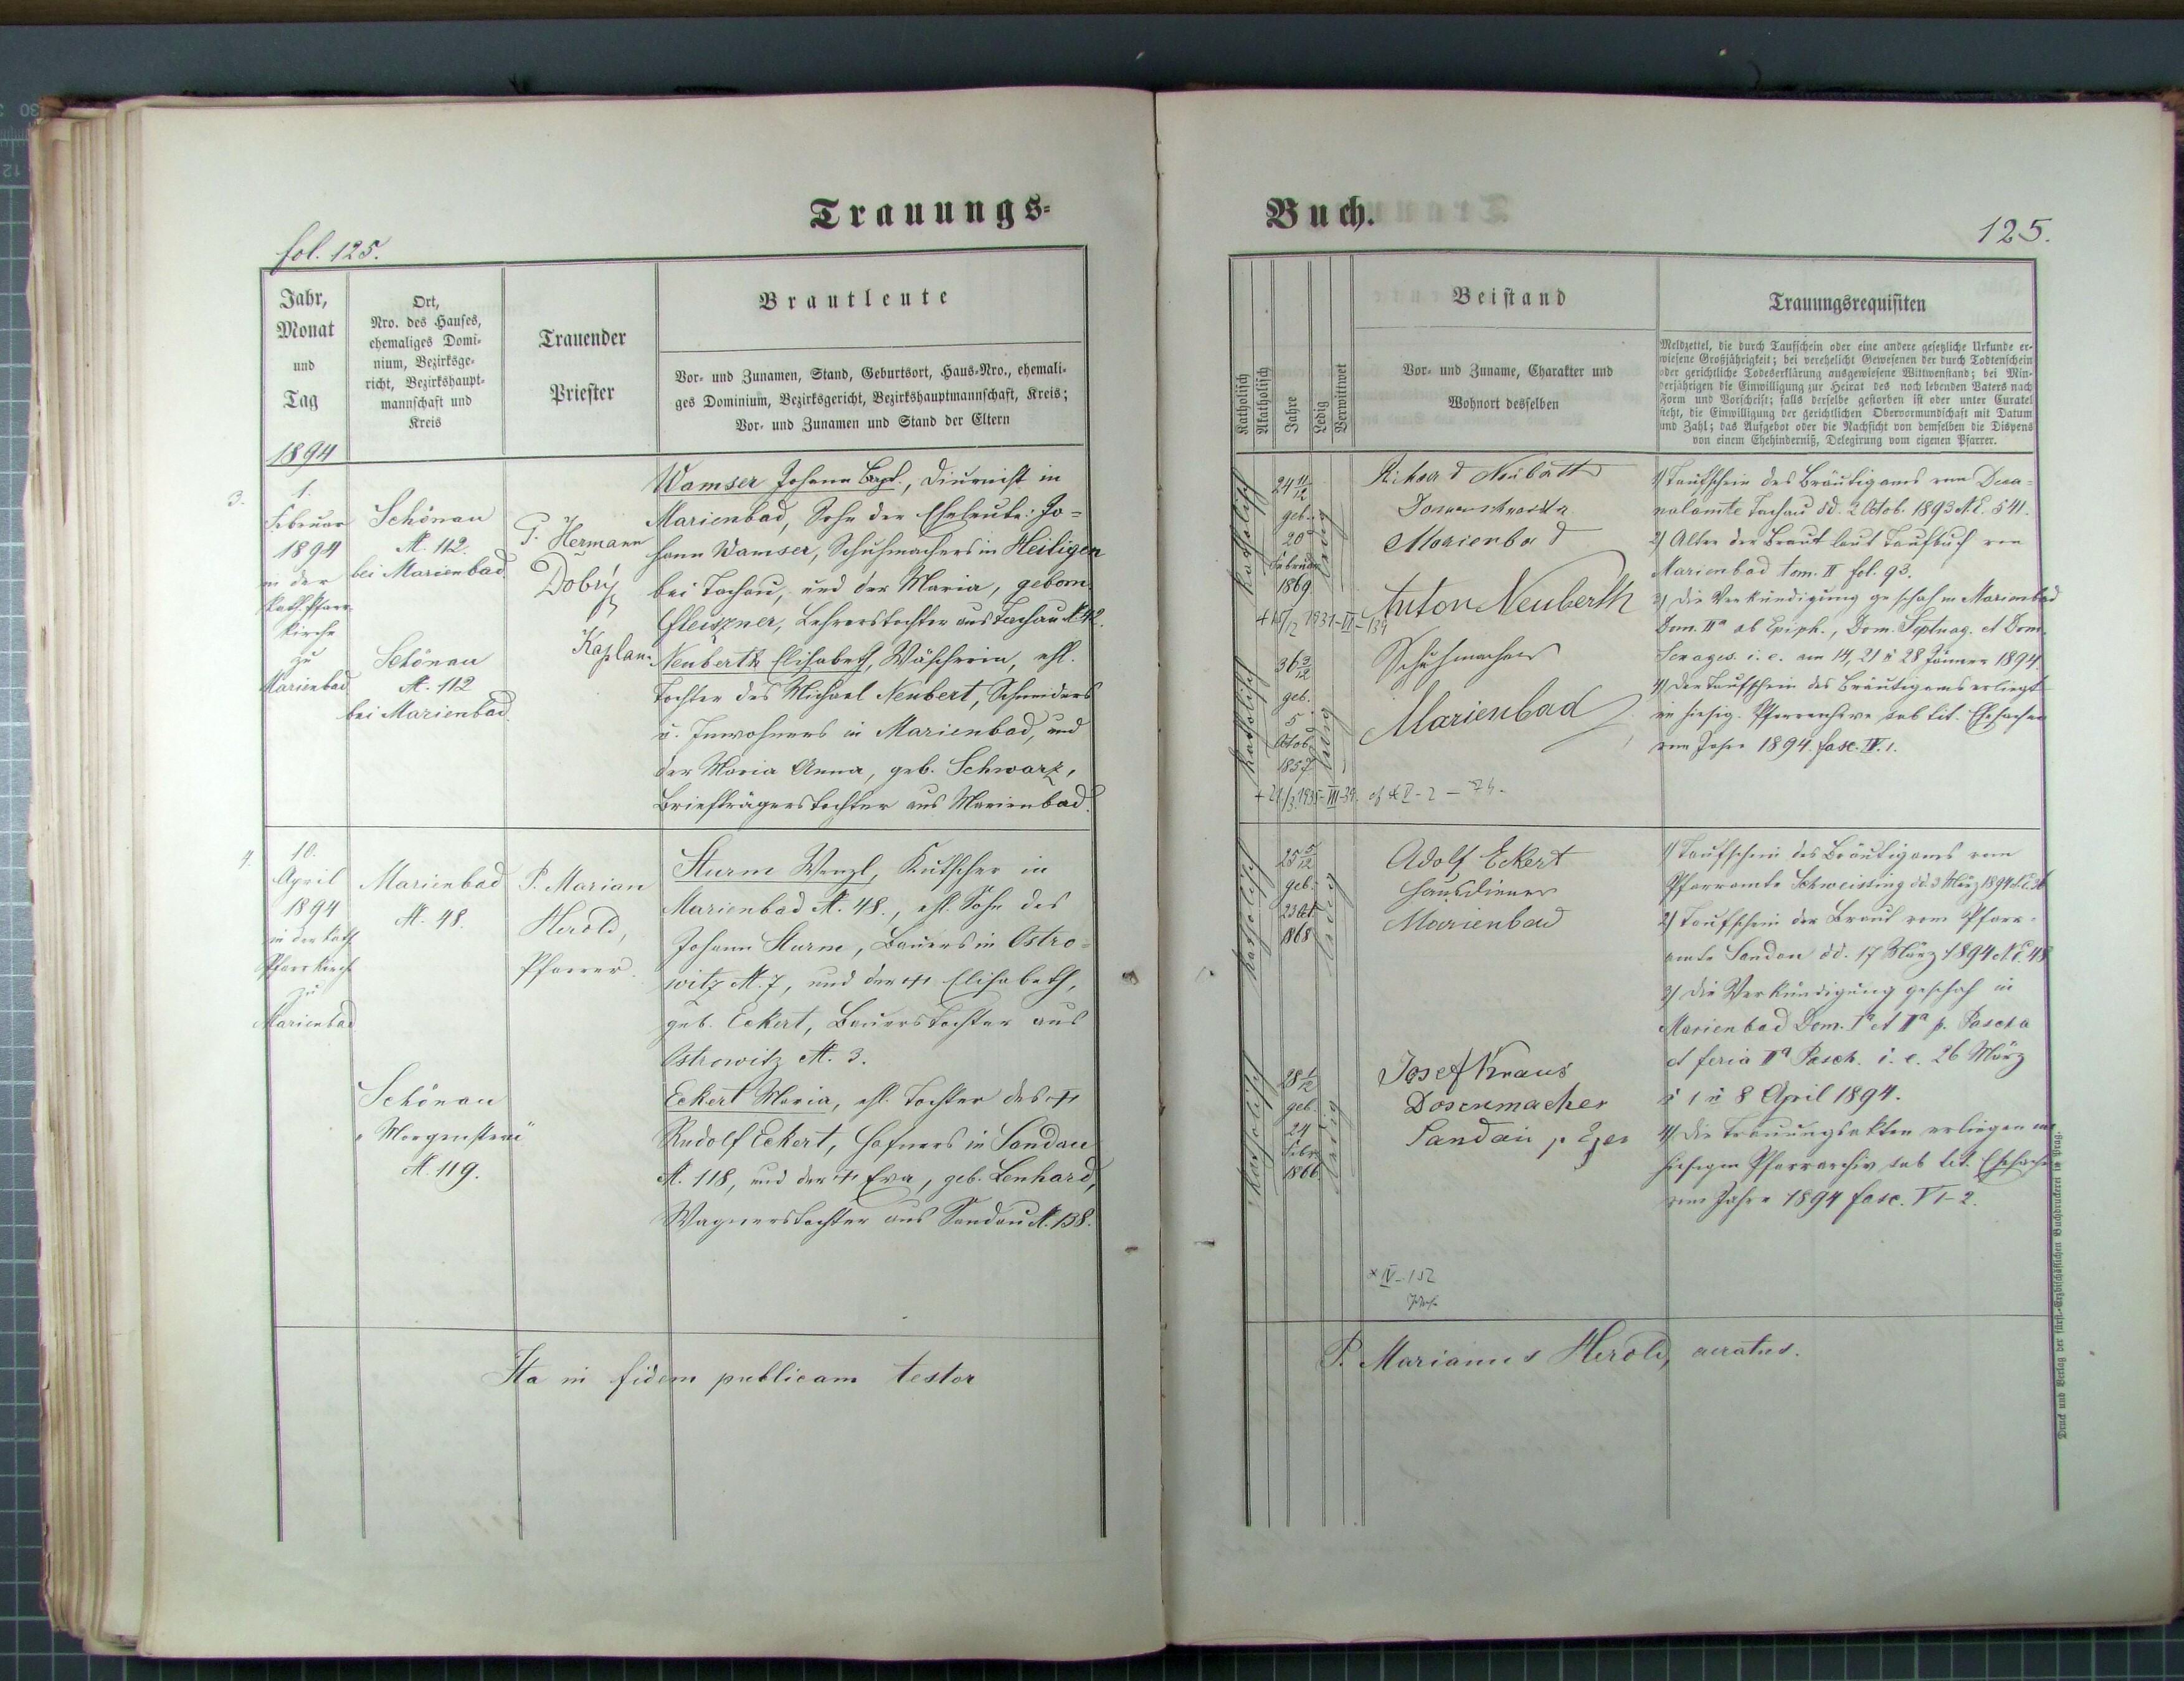 Trauungs=
Buch.
fol. 125.
125.
Jahr,
Monat
und
Tag
Ort,
Nro. des Hauses,
ehemaliges Domi-
nium, Bezirksge-
richt, Bezirkshaupt-
mannschaft und
Kreis
Trauender
Priester
Brautleute
Vor- und Zunamen, Stand, Geburtsort, Haus-Nro., ehemali-
ges Dominium, Bezirksgericht, Bezirkshauptmannschaft, Kreis;
Vor- und Zunamen und Stand der Eltern
Katholisch
Akatholisch
Jahre
Ledig
Verwittwet
Beistand
Vor- und Zuname, Charakter und
Wohnort desselben
Trauungsrequisiten
Meldzettel, die durch Taufschein oder eine andere gesetzliche Urkunde er-
wiesene Großjährigkeit; bei verehelicht Gewesenen der durch Todtenschein
oder gerichtliche Todeserklärung ausgewiesene Wittwenstand; bei Min-
derjährigen die Einwilligung zur Heirat des noch lebenden Vaters nach
Form und Vorschrift; falls derselbe gestorben ist oder unter Curatel
steht, die Einwilligung der gerichtlichen Obervormundschaft mit Datum
und Zahl; das Aufgebot oder die Nachsicht von demselben die Dispens
von einem Ehehinderniß, Delegirung vom eigenen Pfarrer.
1894
3.
1.
Februar
1894
in der
kath. Pfarr
kirche
zu
Marienbad
Schönau
N. 112.
bei Marienbad
Schönau
N. 112
bei Marienbad
P. Hermann
Dobrý
Kaplan.
Wamser Johann Bapt., Diurnist in
Marienbad, Sohn der Eheleute: Jo=
hann Wamser, Schuhmachers in Heiligen
bei Tachau, und der Maria, geborn.
Fleiszner, Lehrerstochter aus Tachau N. 42.
Neuberth Elisabeth, Wäscherin, ehl.
Tochter des Michael Neubert, Schneiders
u. Inwohners in Marienbad, und
der Maria Anna, geb. Schwarz,
Briefträgerstochter aus Marienbad.
katholisch
24 11/12
geb.
20
Februar
1869
ledig
+ 15/12 1931-VI-134
katholisch
36 3/12
geb.
5
Octob.
1857
ledig
+ 21/3.1935-III-39.
Marienbad
Anton Neuberth
Schuhmacher
Marienbad
1) Taufschein des Bräutigams vom Deca=
nalamte Tachau dd. 2 Octob. 1893 N. E. 541.
2) Alter der Braut laut Taufbuch von
Marienbad tom. II fol. 93.
3) Die Verkündigung geschah in Marienbad
Dom. IIª ab Epiph., Dom. Septuag. et Dom.
Sexages. i. e. am 14, 21 u 28 Jänner 1894.
4) Der Taufschein des Bräutigams erliegt
im hiesig. Pfarrarchive sub lit. Ehesachen
vom Jahre 1894. fasc. IV. 1.
4.
10.
April
1894
in der kath.
Pfarrkirche
zu
Marienbad
Marienbad
N. 48.
Schönau
"Morgenstern"
N. 119.
P. Marian
Herold,
Pfarrer.
Sturm Wenzl, Kutscher in
Marienbad N. 48., ehl. Sohn des
Johann Sturm, Bauers in Ostro=
witz N. 7, und der + Elisabeth,
geb. Eckert, Bauerstochter aus
Ostrowitz N. 3.
Eckert Maria, ehl. Tochter des +
Rudolf Eckert, Hafners in Sandau
N. 118, und der + Eva, geb. Lenhard,
Wagnerstochter aus Sandau N. 138.
katholisch
25 5/12
geb.
23 Oct
1868
ledig
katholisch
28 1/12
geb.
24
Febr.
1866
ledig
Adolf Eckert
Hausdiener
Marienbad
Josef Kraus
Dosenmacher
Sandau p Eger
1) Taufschein des Bräutigams vom
Pfarramte Schweissing dd. 3 März 1894
2) Taufschein der Braut vom Pfarr=
amte Sandau dd. 17 März 1894 N. E. 48
3) Die Verkündigung geschah in
Marienbad Dom. Iª et IIª p. Pascha
et feria IIª Pasch. i. e. 26 März
u 1 u 8 April 1894.
4) Die Trauungsakten erliegen im
hiesigen Pfarrarchiv sub lit. Ehesachen
vom Jahre 1894 fasc. V 1-2.
* IV-152
Ita in fidem publicam testor
P. Marianus Herold, curatus.
Druck und Verlag der fürst.-Erzbischöflichen Buchdruckerei in Prag.